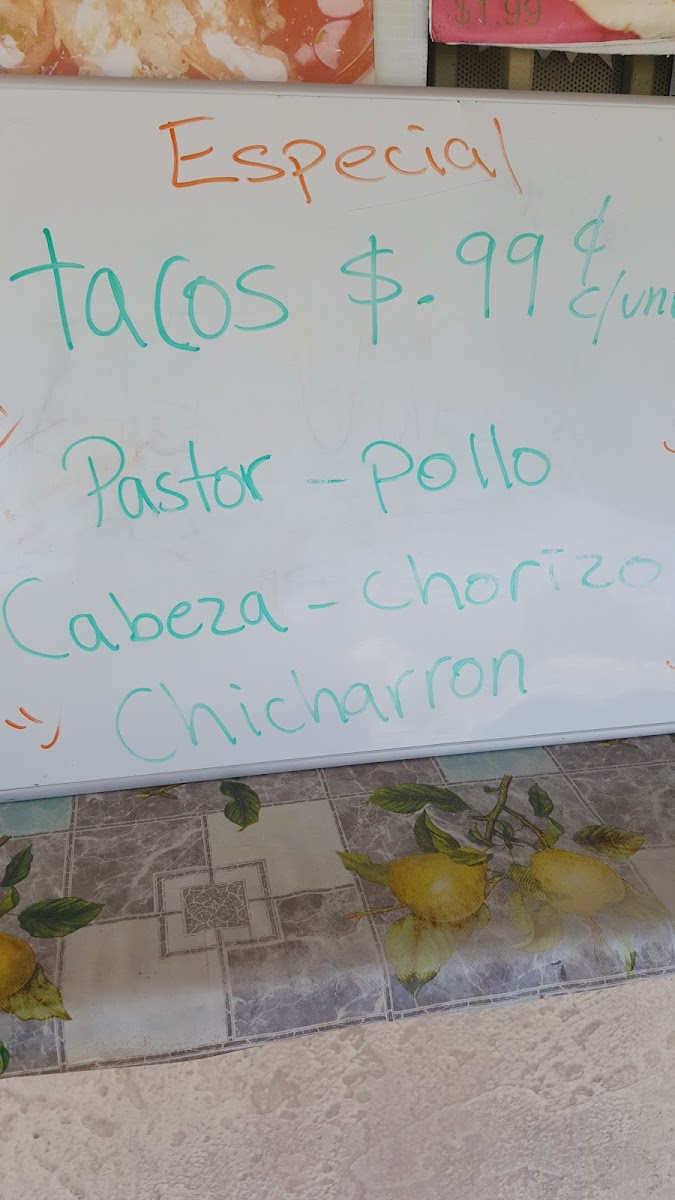 $1.99
Especial
tacos $.99¢
Pastor - pollo
Cabeza - chorizo
Chicharron